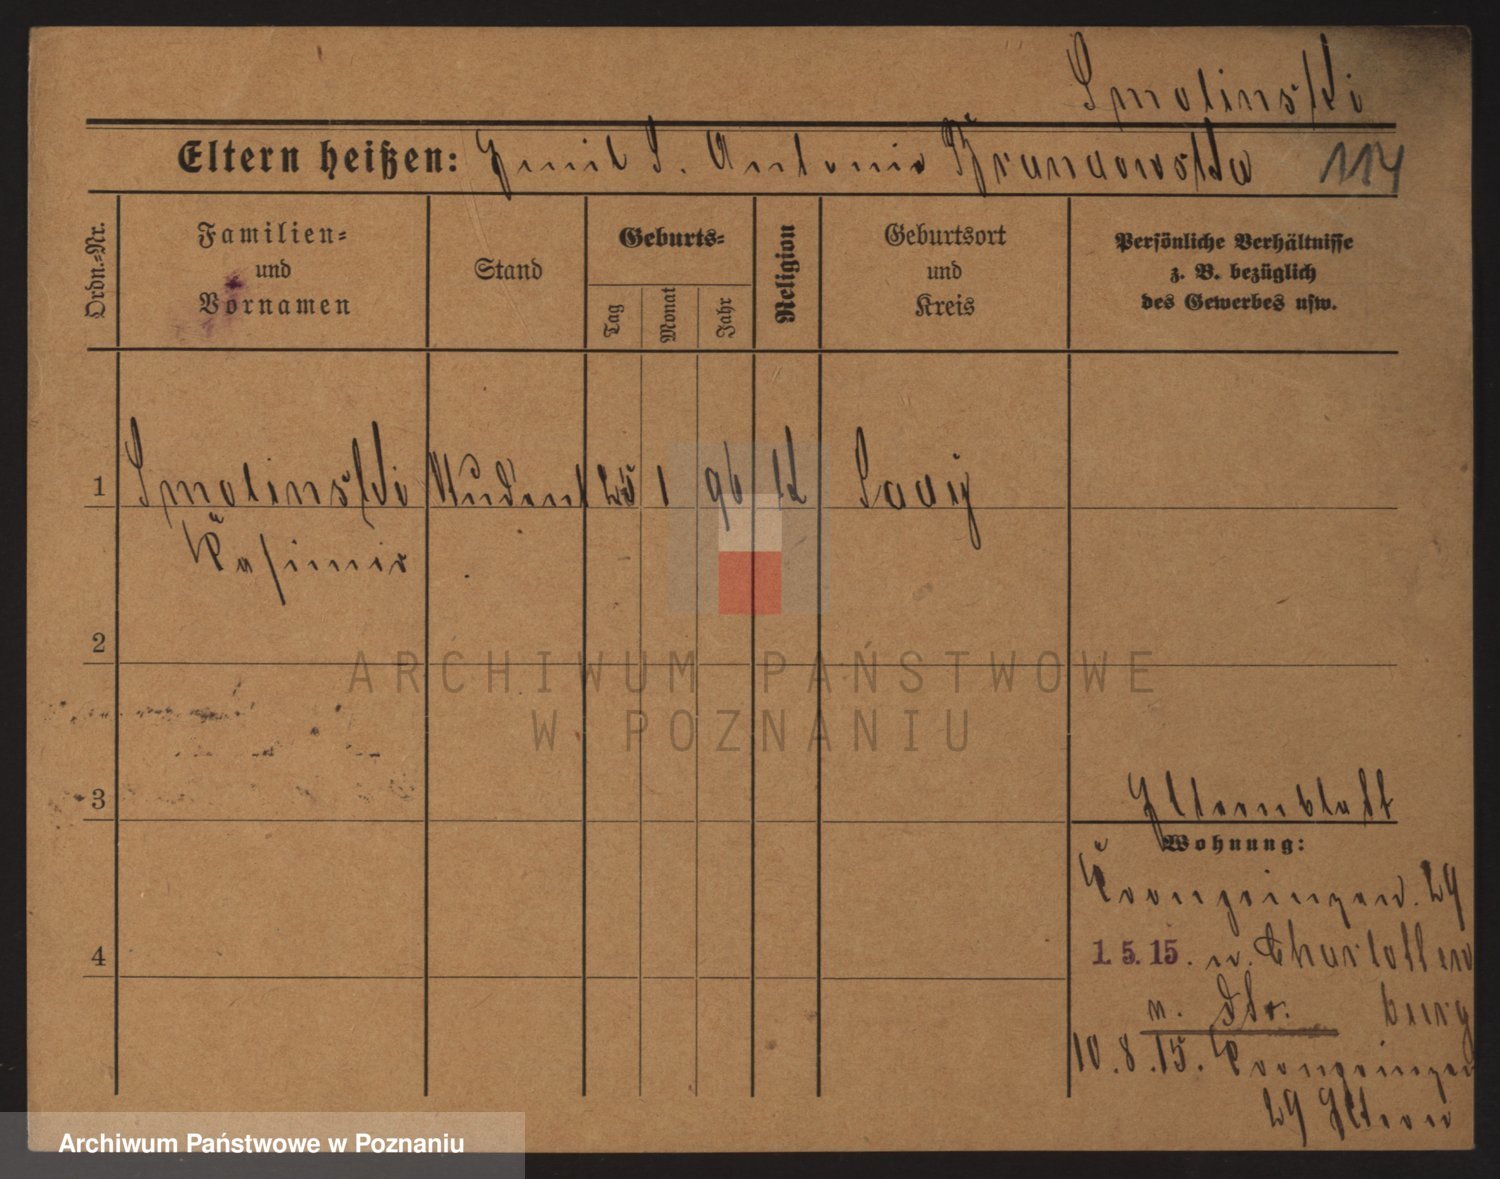 Smolinski
Eltern heißen: Emil S. Antonie Brunadowska 114
Ordn.-Nr.
Familien-
und
Vornamen
Stand
Geburts-
Tag
Monat
Jahr
Religion
Geburtsort
und
Kreis
Persönliche Verhältnisse
z. B. bezüglich
des Gewerbes usw.
1 Smolinski Student 25 1 96 K
Kasimir
2
3
Elternblatt
Wohnung:
Kronprinzen. 29
4
1. 5. 15. n. Charlotten
n. Str. burg
10. 8. 15. Kronprinzen
29 Eltern
ARCHIWUM PAŃSTWOWE
W POZNANIU
Archiwum Państwowe w Poznaniu